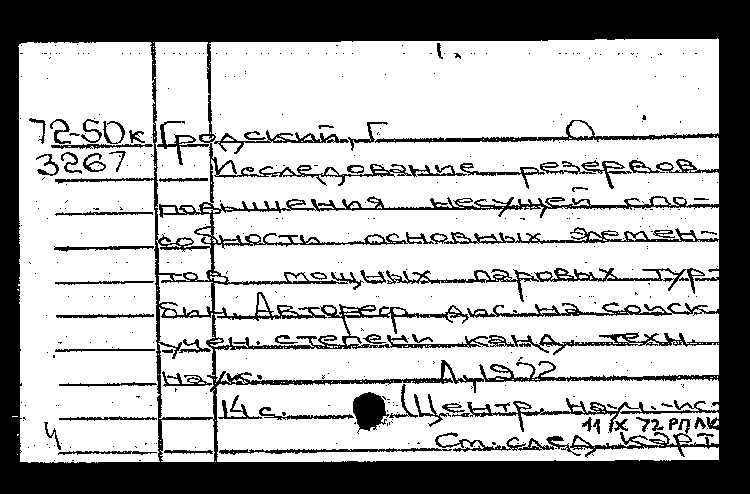 1.
72-50к Гродский, Г О
3267 Исследование резервов
повышения несущей спо-
собности основных элемен-
тов мощных паровых тур-
бин. Автореф. дис. на соиск.
учен. степени канд. техн.
наук. Л., 1972
14 с. (Центр. науч.-ис-
11 IX 72 РПЛК
4 См. след. карт